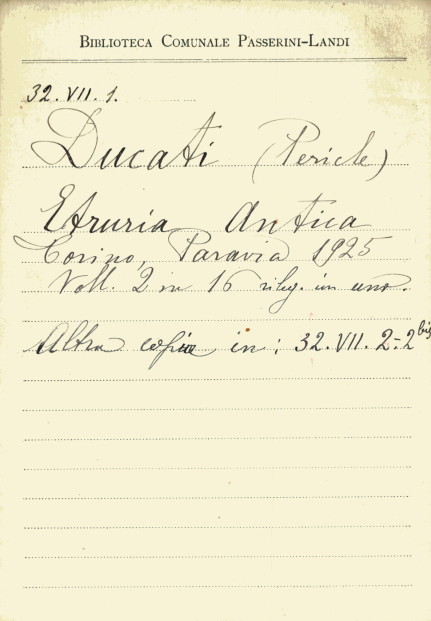 BIBLIOTECA COMUNALE PASSERINI-LANDI
32. VII. 1.
Ducati (Pericle)
Etruria Antica
Torino, Paravia 1925
Voll. 2 in 16 rileg. in uno.
Altra copia in: 32. VII. 2-2 bis